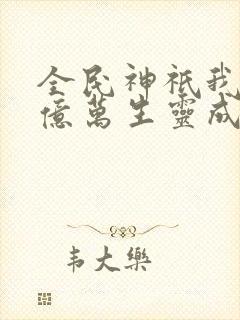 全民神祇我
億萬生靈成
韦大樂